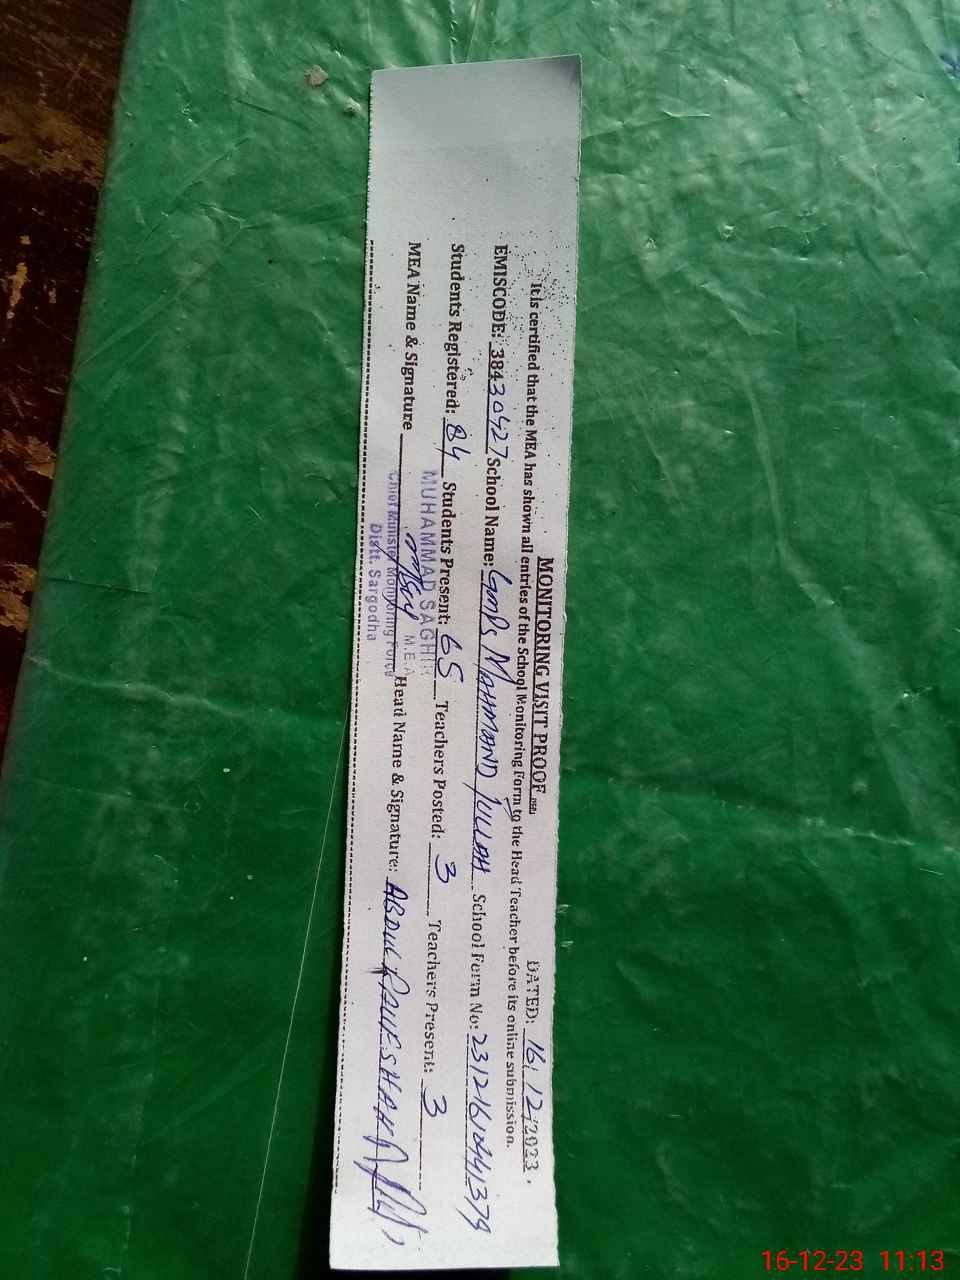 MONITORING VISIT PROOF
DATED: 16/12/2023.
It is certified that the MEA has shown all entries of the School Monitoring Form to the Head Teacher before its online submission.
EMISCODE: 38430427 School Name: GMPS MAHMAND JULLAH School Form No:
Students Registered: 84 Students Present: 65 Teachers Posted: 3 Teachers Present: 3
MEA Name & Signature Head Name & Signature: ABDUL RAUF SHAH
MUHAMMAD SAGHIR
M.E.A
Chief Minister Monitoring Force
Distt. Sargodha
16-12-23 11:13